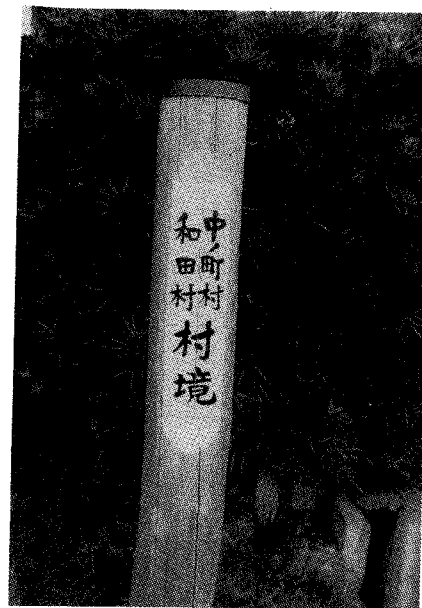 中ノ町村
和田村
村境